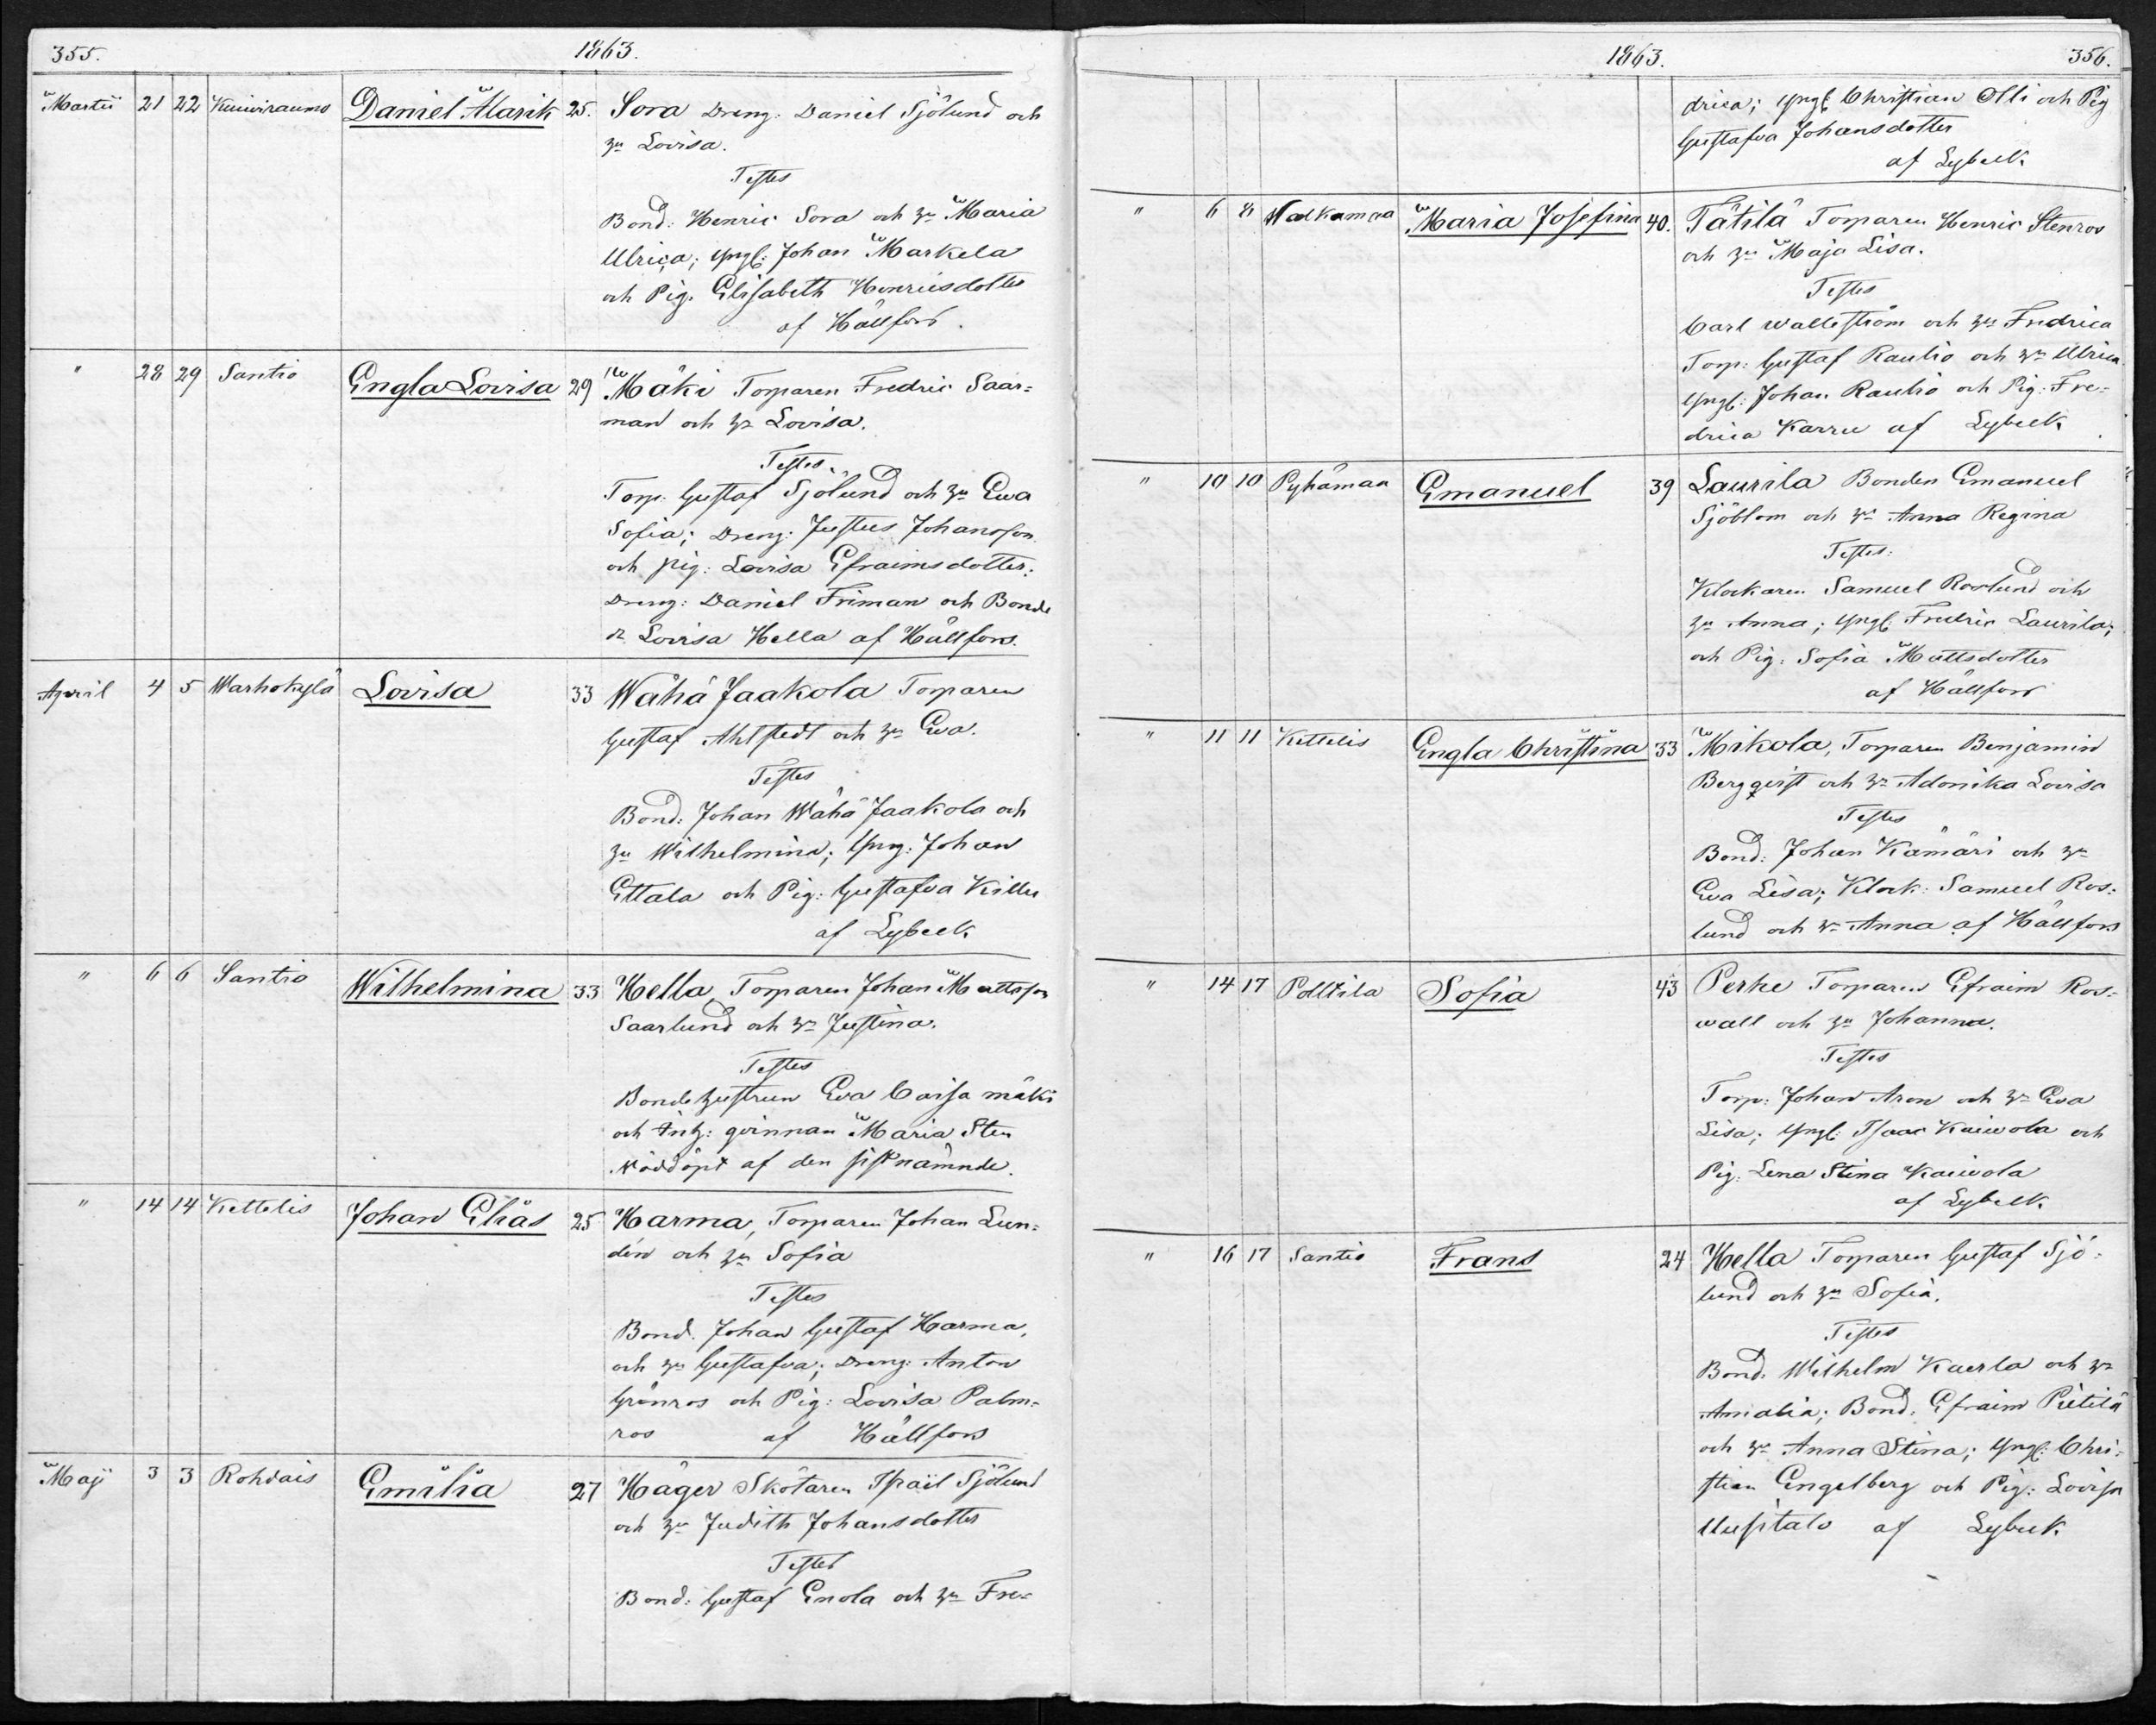 355. 1863.
Martii 21 22 Kuiviraums Daniel Alarik 25. Sora Dreng: Daniel Sjölund och
hu Lovisa.
Testes
Bond: Henric Sora och hu Maria
Ulrica; Yngl: Johan Markela
och Pig. Elisabeth Henricsdotter
af Hällfors.
" 28 29 Santio Engla Lovisa 29 Mäki Torparen Fredric Saar=
man och hu Lovisa.
Testes.
Torp: Gustaf Sjölund och hu Ewa
Sofia; Dreng: Justus Johansson
och pig: Lovisa Efraimsdotter;
Dreng: Daniel Friman och Bonde
d. Lovisa Hella af Hällfors.
April 4 5 Warhokylä Lovisa 33 Wähä Jaakola Torparen
Gustaf Ahlstedt och hu Eva.
Testes
Bond: Johan Wähä Jaakola och
hu Wilhelmina; Yng: Johan
Ettala och Pig: Gustafva Killu
af Lybeck
" 6 6 Santio Wilhelmina 33 Hella, Torparen Johan Mattsson
Saarlund och hu Justina.
Testes
Bondehustrun Eva Caisa mäki
och Inh: qvinnan Maria Sten
Nöddöpt af den sistnämnde.
" 14 14 Kettelis Johan Elias 25 Harma, Torparen Johan Lun=
dén och hu Sofia
Testes
Bond. Johan Gustaf Harma,
och hu Gustafva; Dreng: Anton
Grönros och Pig: Lovisa Palm=
ros af Hällfors
Maji 3 3 Rohdais Emilia 27 Häger Skötaren Israil Sjölund
och hu Judith Johansdotter
Testes
Bond: Gustaf Enola och hu Fre=
1863. 356.
drica; Yngl: Christian Olli och Pig
Gustafva Johansdotter
af Lybeck
" 6 8 Walkamaa Maria Josefina 40. Tätilä Torparen Henric Stenros
och hu Maja Lisa.
Testes
Carl Wallström och hu Fredrica
Torp: Gustaf Raulio och hu Ulrica
Yngl: Johan Raulio och Pig: Fre=
drica Karru af Lybeck
" 10 10 Pyhämaa Emanuel 39 Laurila Bonden Emanuel
Sjöblom och hu Anna Regina
Testes:
Klockaren Samuel Roslund och
hu Anna; Yngl: Fredric Laurila;
och Pig: Sofia Mattsdotter
af Hällfors
" 11 11 Kettelis Engla Christina 33 Mikola, Torparen Benjamin
Bergqvist och hu Adonika Lovisa
Testes
Bond: Johan Kämäri och hu
Eva Lisa; Klock: Samuel Ros=
lund och hu Anna af Hällfors
" 14 17 Polttila Sofia 43 Perhe Torparen Efraim Ros=
wall och hu Johanna.
Testes
Torp: Johan Aron och hu Eva
Lisa; Yngl: Isaac Kaivola och
Pig: Lena Stina Kaivola
af Lybeck.
" 16 17 Santio Frans 24 Hella Torparen Gustaf Sjö=
lund och hu Sofia.
Testes
Bond: Wilhelm Kaerla och hu
Amalia; Bond. Efraim Pietilä
och hu Anna Stina; Yngl: Chri=
stian Engelberg och Pig: Lovisa
Uusitalo af Lybeck